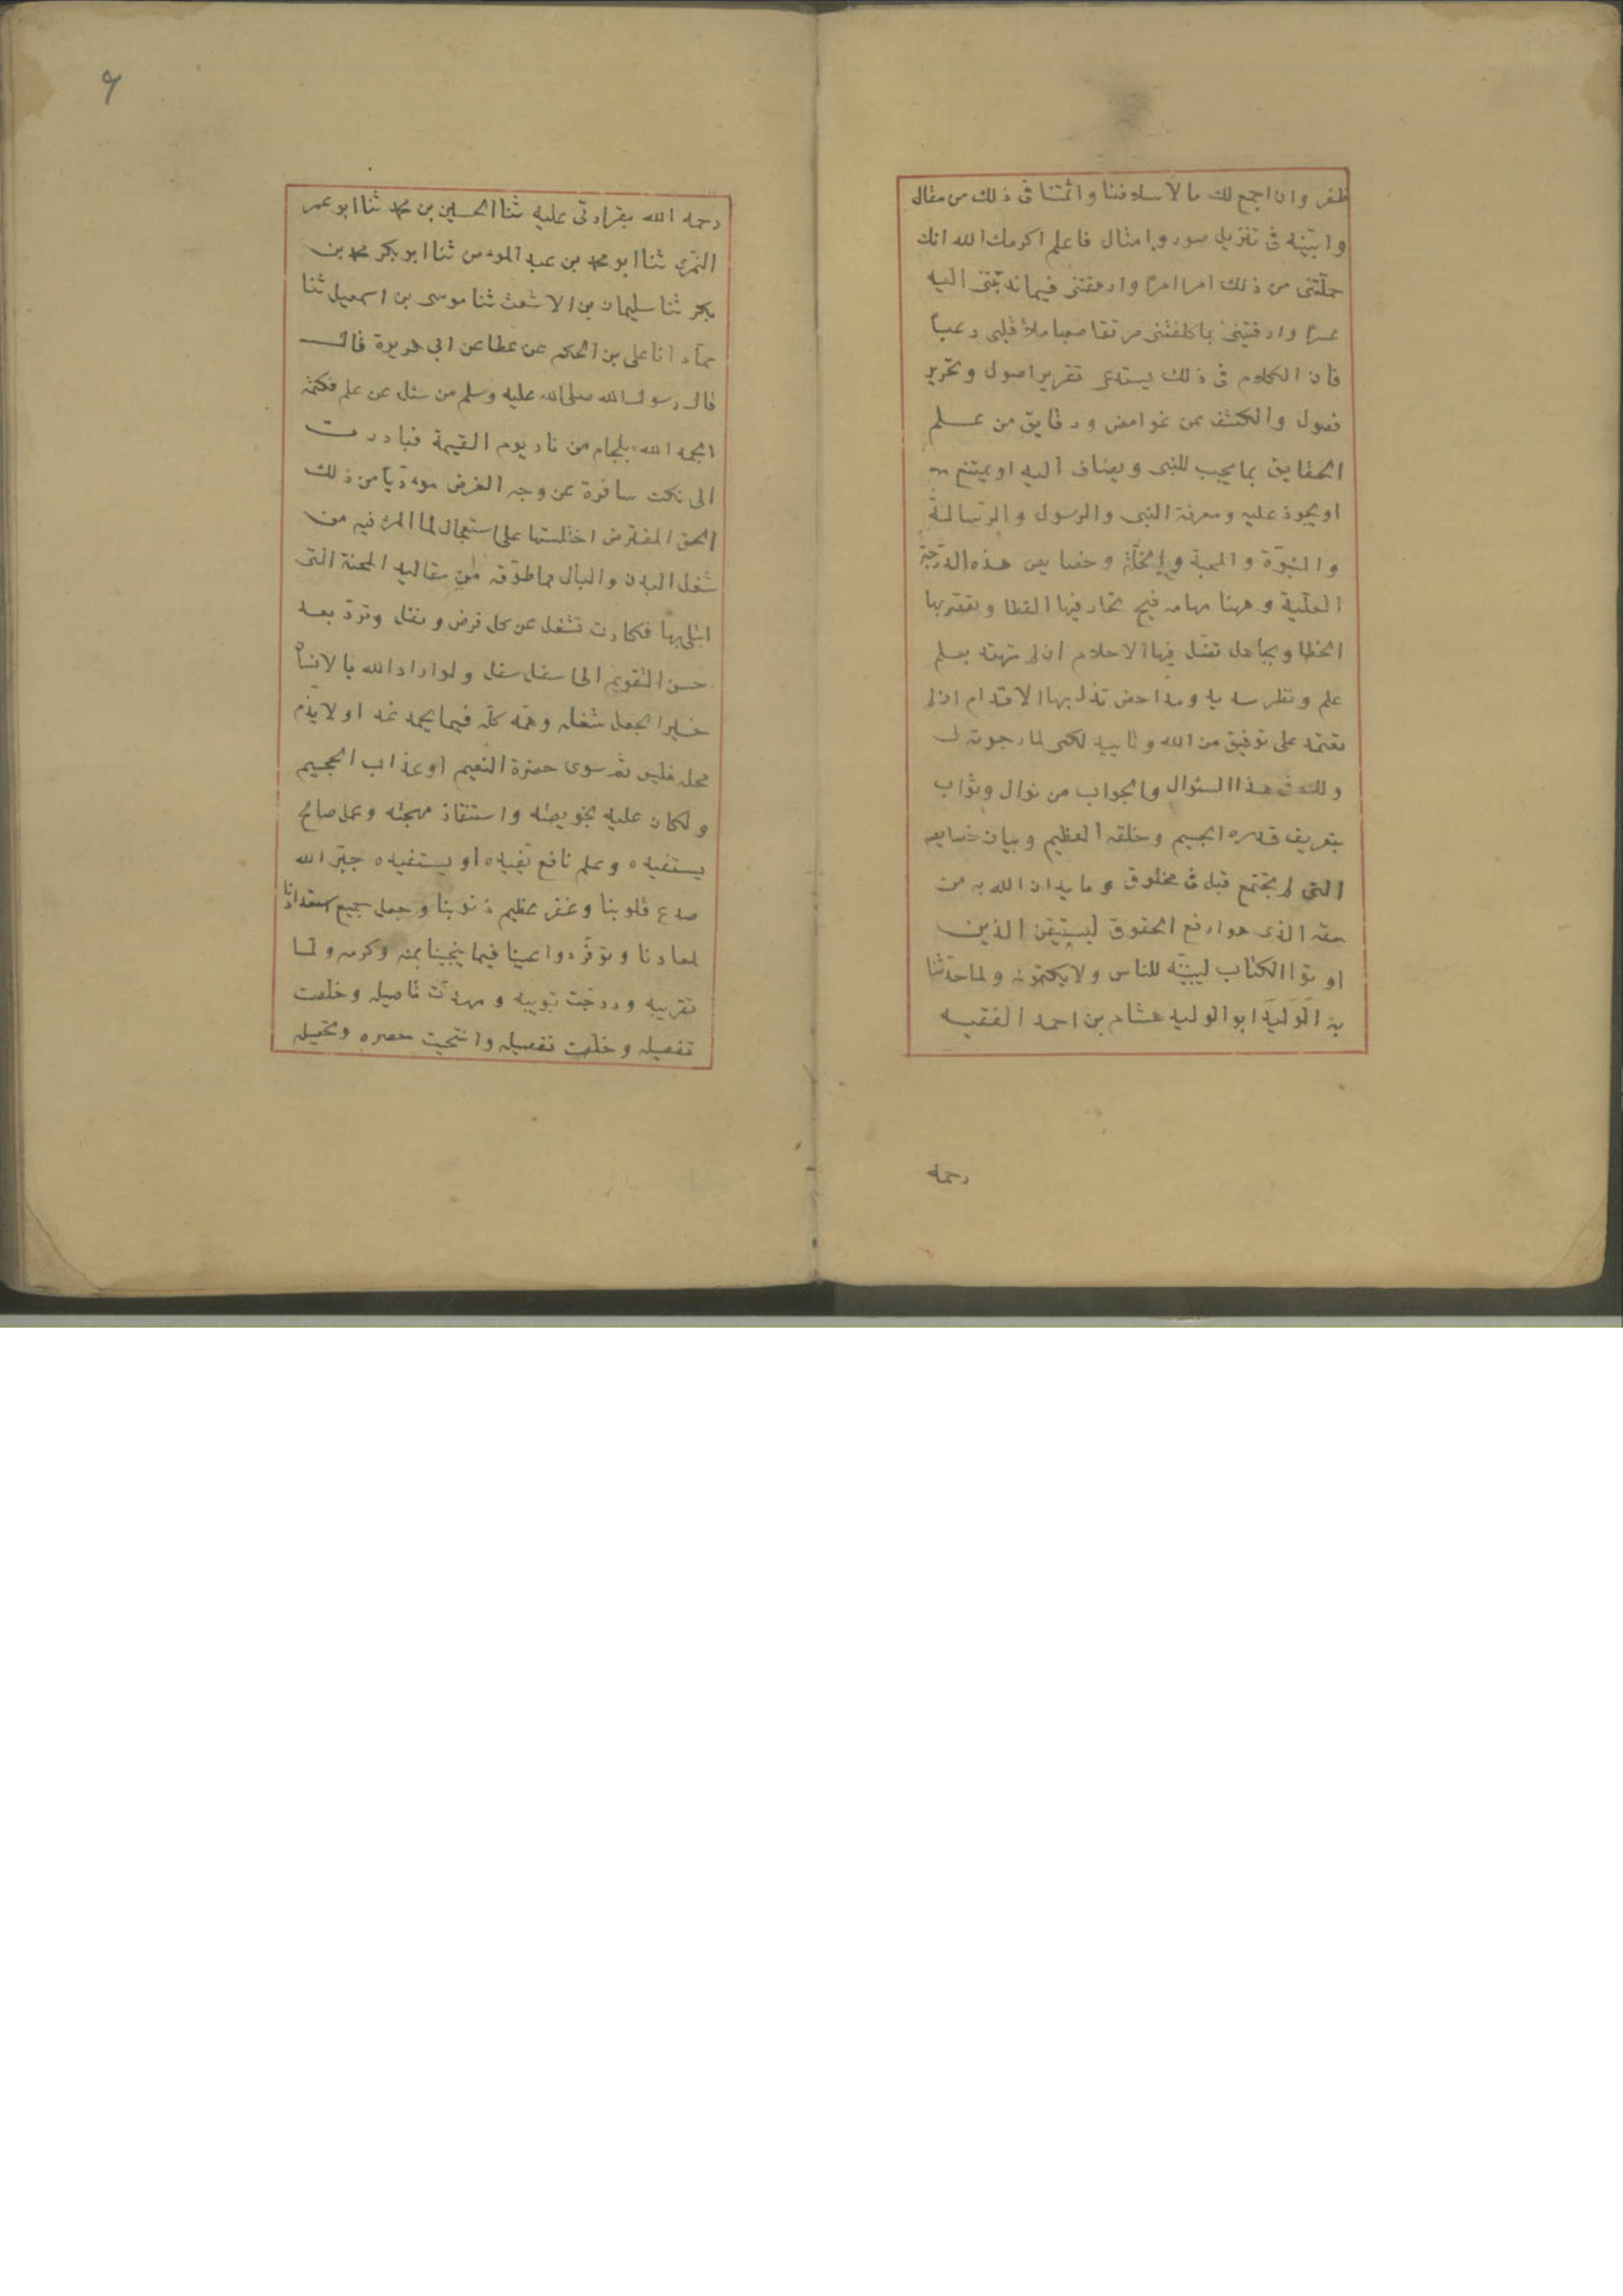 ظفر وان اجمع لك ما لاسلافنا وائمتنا فى ذلك من مقال
وابيّنه فى تنزيل صور وامثال فاعلم اكرمك الله انك
حملّتنى من ذلك امرا امرًا وارهقتنى فيما ندبتنى اليه
عسرًا وارقيتنى بما كلفتنى مرتقا صعبا ملأ قلبى رعبًا
فان الكلام فى ذلك يستدعى تقرير اصول وتحرير
فصول والكشف عن غوامض ودقايق من علم
الحقايق بما يجب للنبى ويضاف اليه او يمتنع
او يجوز عليه ومعرفة النبى والرسول والرسالة
والنبوّة والمحبة والخلّة وخصايص هذه الدّرجة
العليّة وههنا مهامه فيح تحار فيها القطا وتقصر بها
الخطا ومجاهل تضل فيها الاحلام ان لم تهتد بعلم
علم ونظر سديد ومداحض تذل بها الاقدام ان لم
تعتمد على توفيق من الله وتاييد لكنى لما رجوته لى
ولك فى هذا السئوال والجواب من نوال وثواب
بتعريف قدره الجسيم وخلقه العظيم وبيان خصايصه
التى لم تجتمع قبل فى مخلوق وما يدان الله به من
حقه الذى هو ارفع الحقوق ليستيقن الذين
اوتوا الكتاب ليبيّنه للناس ولا يكتمونه ولما حدّثنا
به الوليد ابو الوليد هشام بن احمد الفقيه
رحمه
٩
رحمه الله بقراءتى عليه ثنا الحسين بن محمد ثنا ابو عمر
النمرى ثنا ابو محمد بن عبد المومن ثنا ابو بكر محمد بن
بكر ثنا سليمان بن الاشعث ثنا موسى بن اسمعيل ثنا
حمّاد انا على بن الحكم عن عطا عن ابى هريرة قال
قال رسول الله صلى الله عليه وسلم من سئل عن علم فكتمه
الجمه الله بلجام من نار يوم القيمة فبادرت
الى نكت سافرة عن وجه الغرض موديّا من ذلك
الحق المفترض اختلستها على استعجال لما المرء فيه من
شغل البدن والبال بما طوّقه من مقاليد المحنة التى
ابتلى بها فكادت تشغل عن كل فرض ونفل وتردّ بعد
حسن التقويم الى اسفل سفل ولو اراد الله بالانسان
خيرا لجعل شغله وهمّه كلّه فيما يحمد غدا ولا يذم
محله فليس ثم سوى حضرة النعيم او عذاب الجحيم
ولكان عليه بخويصته واستنقاذ مهجته وعمل صالح
يستفيده وعلم نافع يفيده او يستفيده جبّر الله
صدع قلوبنا وغفر عظيم ذنوبنا وجعل جميع استعدادنا
لمعادنا وتوفّر دواعينا فيما ينجينا بمنه وكرمه ولما
تقريبه ودرجت تبويبه ومهدت تاصيله وخلصت
تفصيله وخلصت تفصيله وانتحيت حصره وتحصيله